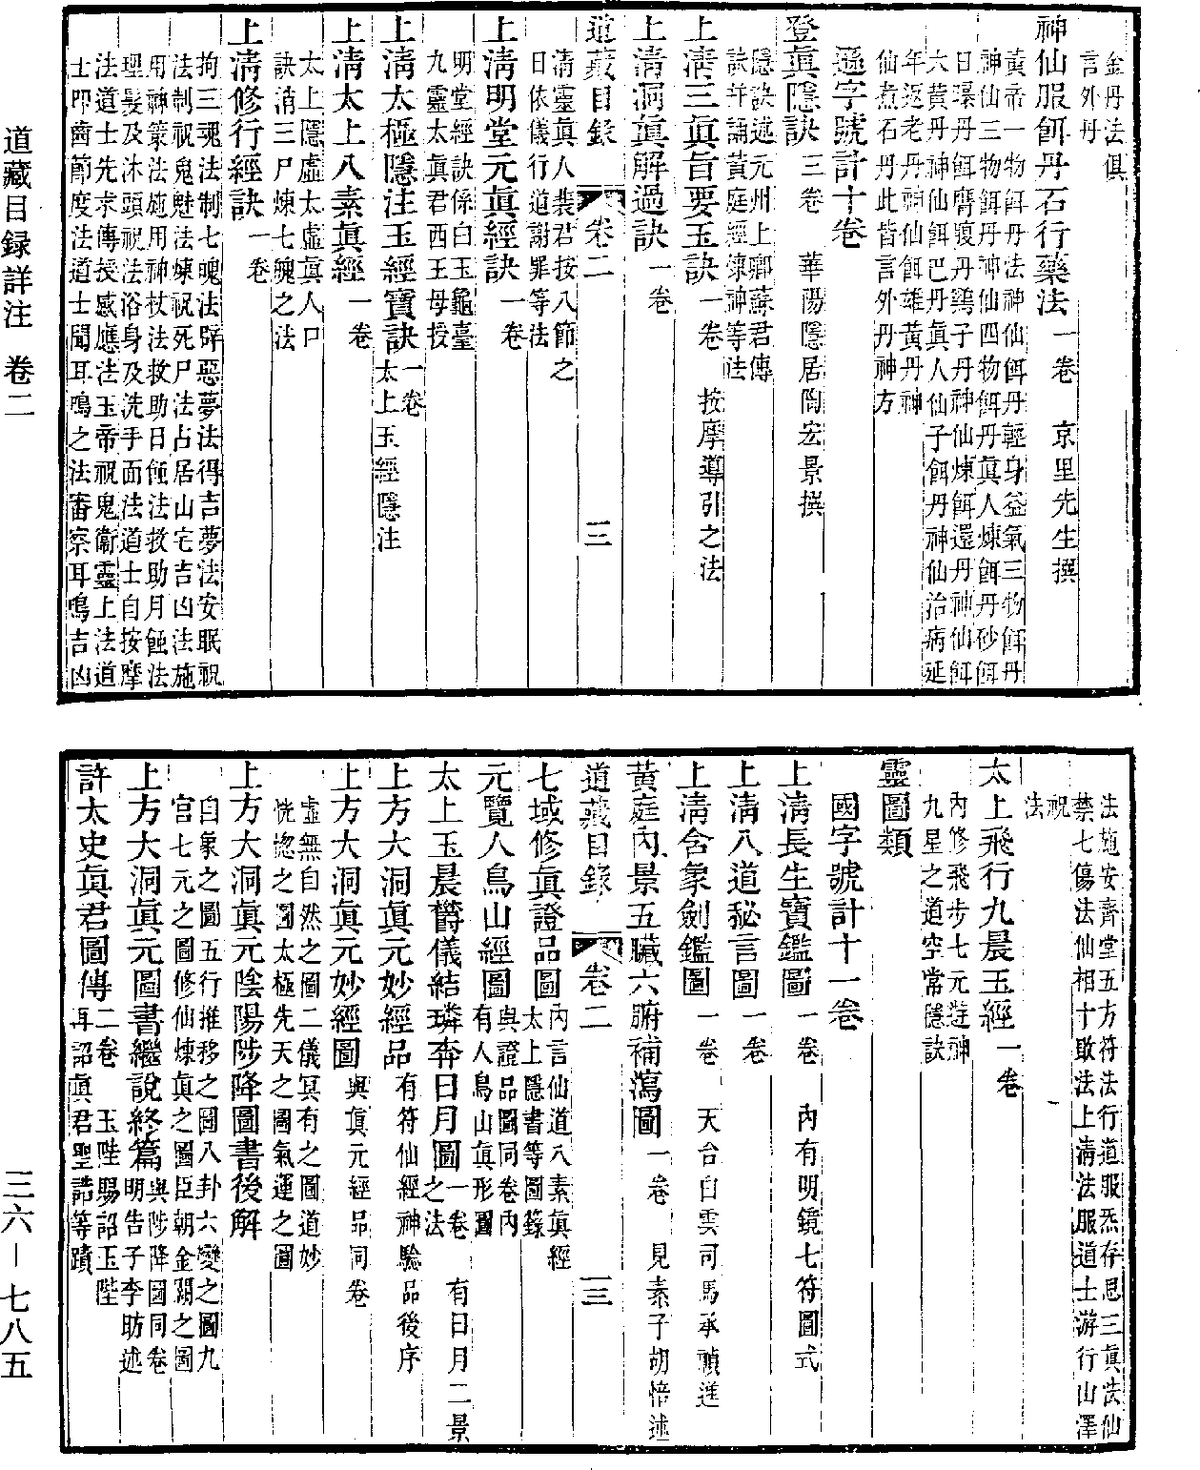 金丹法俱
言外丹
神仙服餌丹石行藥法一卷 京里先生撰
黃帝一物餌丹法神仙餌丹輕身益氣三物餌丹
神仙三物餌丹神仙四物餌丹眞人煉餌丹砂餌
日曝丹餌膺腹丹鷄子丹神仙煉餌還丹神仙餌
六黃丹神仙餌巴丹眞人仙子餌丹神仙治病延
年返老丹神仙餌雄黃丹神
仙煮石丹此皆言外丹神方
遜字號計十卷
登眞隱訣三卷 華陽隱居陶宏景撰
隱訣述元州上卿蘇君傳
訣并誦黃庭經煉神等法
上淸三眞旨要玉訣一卷 按摩導引之法
上淸洞眞解過訣一卷
道藏目錄 卷二 三
淸靈眞人裴君按八節之
日依儀行道謝罪等法
上淸明堂元眞經訣一卷
明堂經訣係白玉龜臺
九靈太眞君西王母授
上淸太極隱注玉經寶訣一卷
太上玉經隱注
上淸太上八素眞經一卷
太上隱虛太虛眞人口
訣消三尸煉七魄之法
上淸修行經訣一卷
拘三魂法制七魄法辟惡夢法得吉夢法安眠祝
法制祝鬼魅法煉祝死尸法占居山宅吉凶法施
用神策法施用神杖法救助日蝕法救助月蝕法
理髮及沐頭祝法浴身及洗手面法道士自按摩
法道士先求傳授感應法玉帝祝鬼衞靈上法道
士叩齒節度法道士聞耳鳴之法審察耳鳴吉凶
法施安齊堂五方符法行道服炁存思三眞法仙
禁七傷法仙相十敗法上淸法服道士游行山澤
祝
法
太上飛行九晨玉經一卷
內修飛步七元遊神
九星之道空常隱訣
靈圖類
國字號計十一卷
上淸長生寶鑑圖一卷 內有明鏡七符圖式
上淸八道秘言圖一卷
上淸含象劍鑑圖一卷 天台白雲司馬承禎進
黃庭內景五臟六腑補瀉圖一卷 見素子胡愔述
道藏目錄 卷二 三
七域修眞證品圖
內言仙道八素眞經
太上隱書等圖籙
元覽人鳥山經圖
與證品圖同卷內
有人鳥山眞形圖
太上玉晨欝儀結璘奔日月圖一卷 有日月二景
之法
上方大洞眞元妙經品 有符仙經神驗品後序
上方大洞眞元妙經圖 與眞元經品同卷
虛無自然之圖二儀冥有之圖道妙
恍惚之圖太極先天之圖氣運之圖
上方大洞眞元陰陽陟降圖書後解
自象之圖五行推移之圖八卦六變之圖九
宮七元之圖修仙煉眞之圖臣朝金闕之圖
上方大洞眞元圖書繼說終篇
與陟降圖同卷
明告子李昉述
許太史眞君圖傳二卷 玉陛賜詔玉陛
再詔眞君聖誥等蹟
道藏目録詳注 卷二
三六—七八五